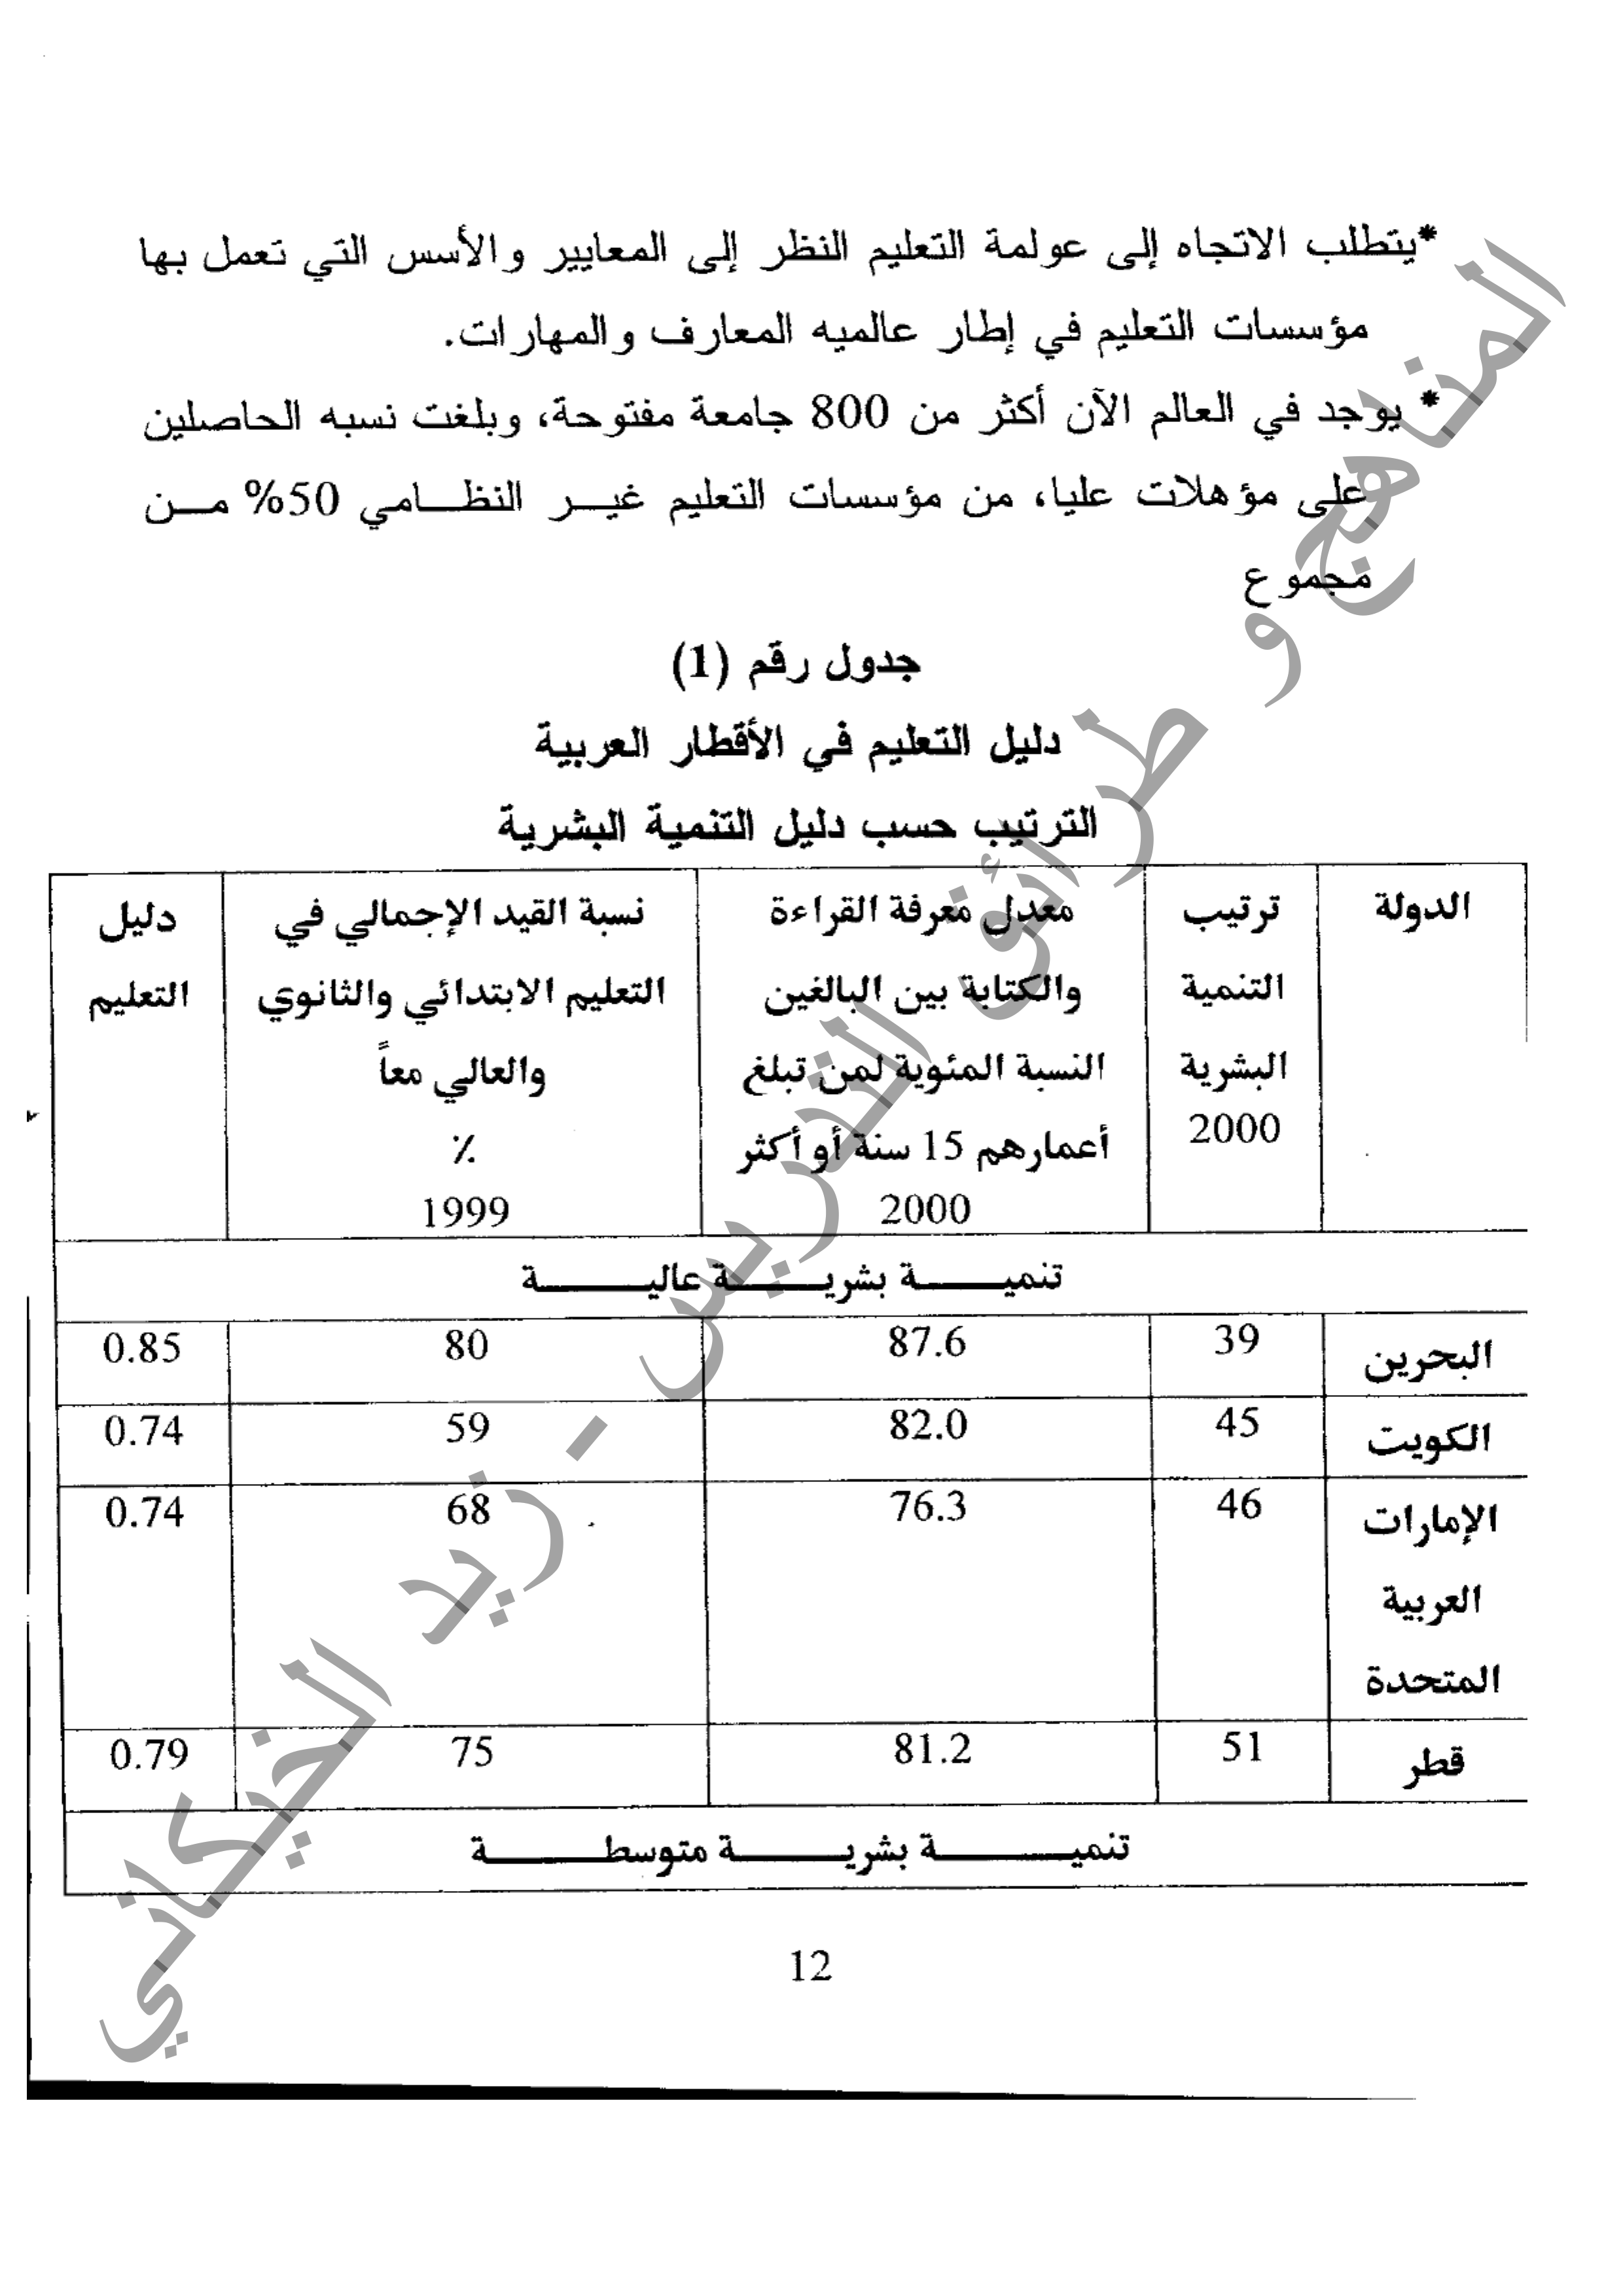 *يتطلب الاتجاه إلى عولمة التعليم النظر إلى المعايير والأسس التي تعمل بها
مؤسسات التعليم في إطار عالميه المعارف والمهارات.
* يوجد في العالم الآن أكثر من 800 جامعة مفتوحة، وبلغت نسبه الحاصلين
على مؤهلات عليا، من مؤسسات التعليم غيـر النظـامي 50% مـن
مجموع
جدول رقم (1)
دليل التعليم في الأقطار العربية
الترتيب حسب دليل التنمية البشرية
الدولة
ترتيب
التنمية
البشرية
2000
معدل معرفة القراءة
والكتابة بين البالغين
النسبة المئوية لمن تبلغ
أعمارهم 15 سنة أو أكثر
2000
نسبة القيد الإجمالي في
التعليم الابتدائي والثانوي
والعالي معاً
٪
1999
دليل
التعليم
تنميــــة بشريــــة عاليــــة
البحرين 39 87.6 80 0.85
الكويت 45 82.0 59 0.74
الإمارات 46 76.3 68 0.74
العربية
المتحدة
قطر 51 81.2 75 0.79
تنميــــة بشريــــة متوسطــــة
12
المناهج و طرائق التدريس - زيد الخيكاني